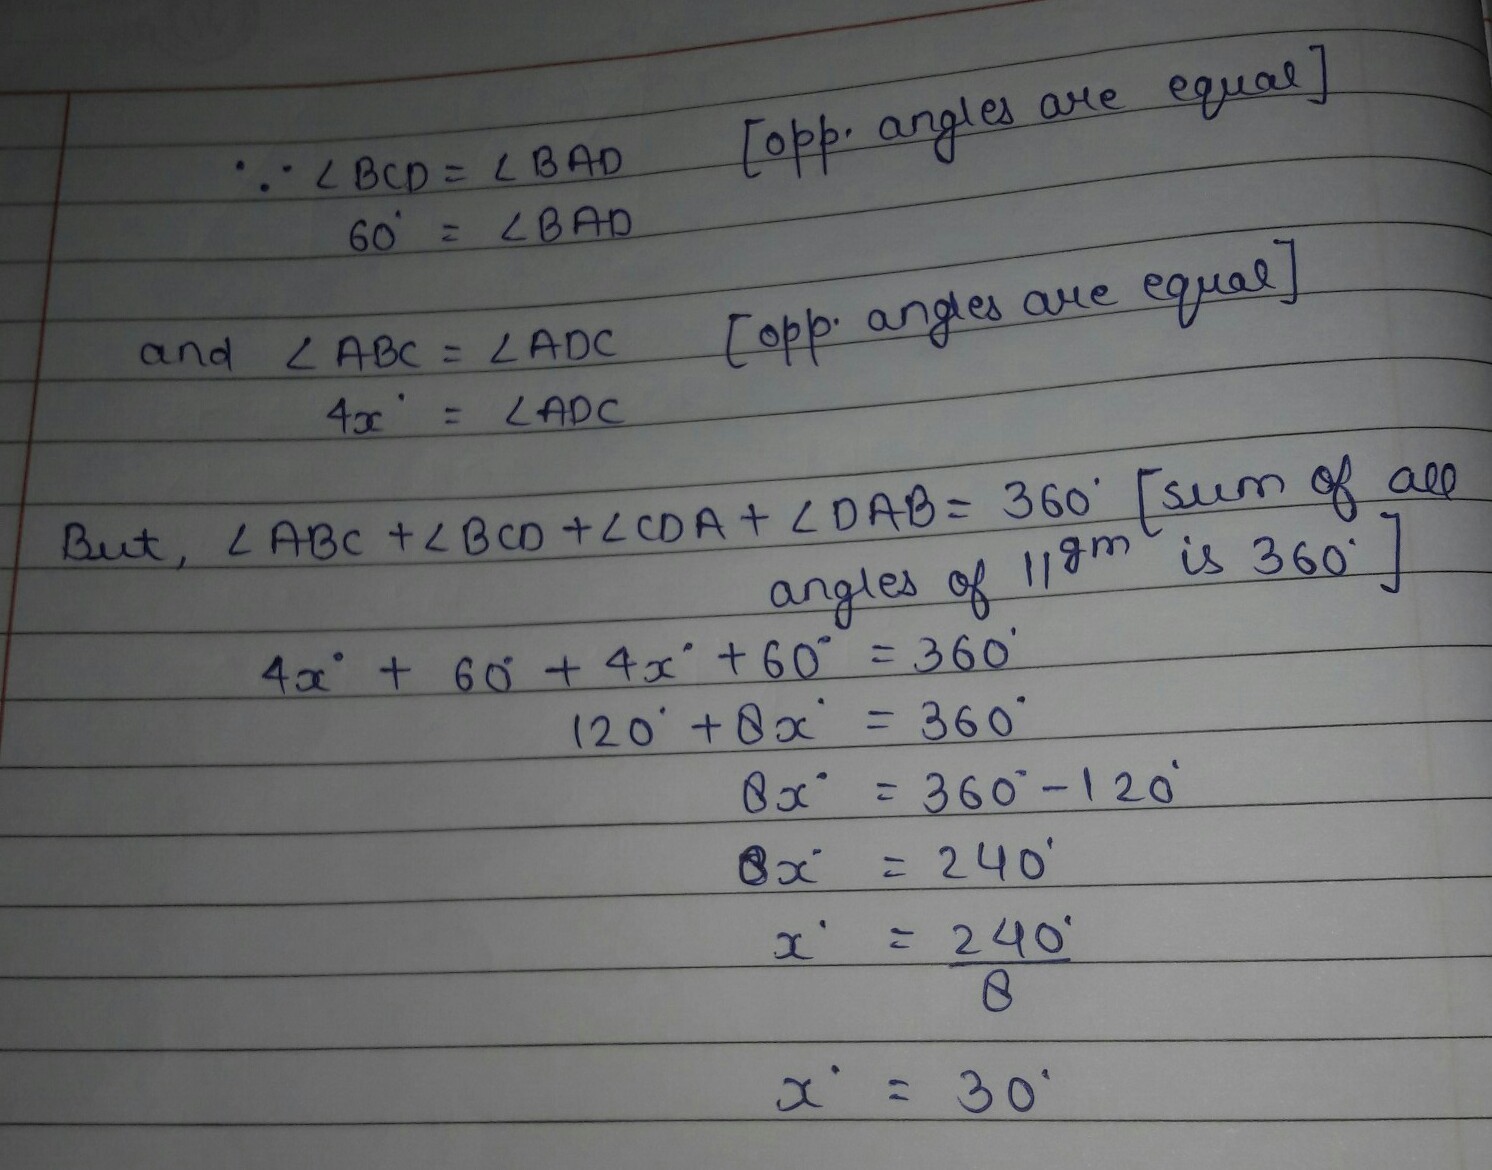 ∵ ∠BCD = ∠BAD [opp. angles are equal]
60° = ∠BAD
and ∠ABC = ∠ADC [opp. angles are equal]
4x° = ∠ADC
But, ∠ABC + ∠BCD + ∠CDA + ∠DAB = 360° [sum of all
angles of 11gm is 360°]
4x° + 60° + 4x° + 60° = 360°
120° + 8x° = 360°
8x° = 360° - 120°
8x° = 240°
x° = 240°
8
x° = 30°